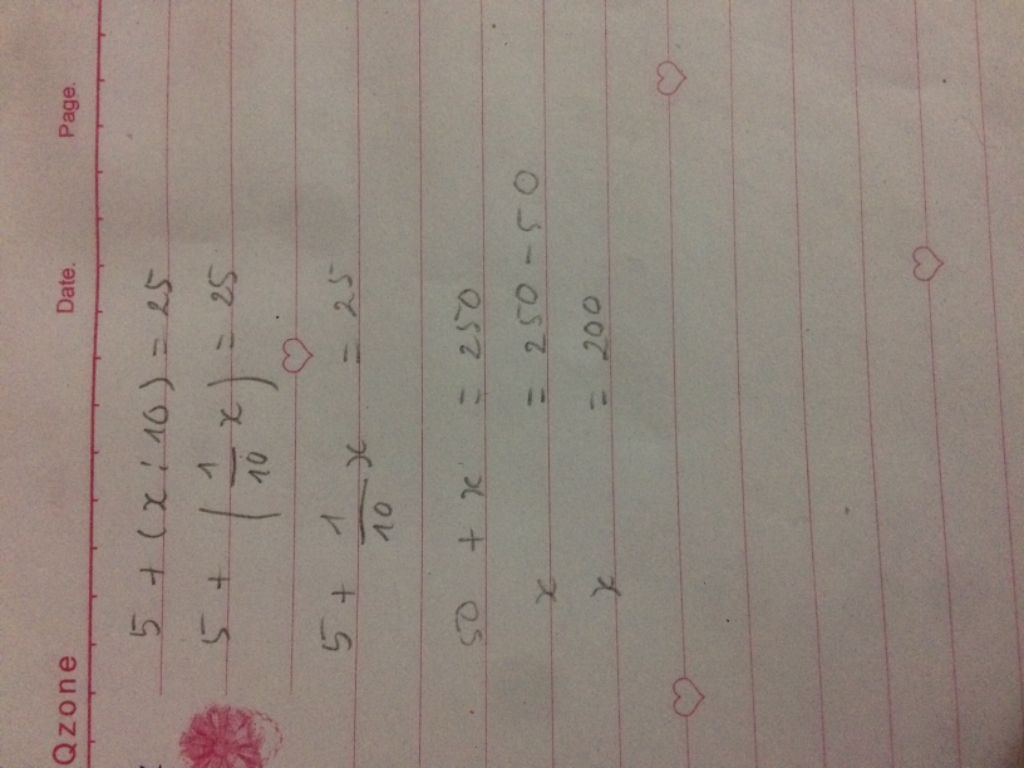 Qzone Date. Page.
5 + (x : 10) = 25
5 + (1/10 x) = 25
5 + 1/10 x = 25
50 + x = 250
x = 250 - 50
x = 200